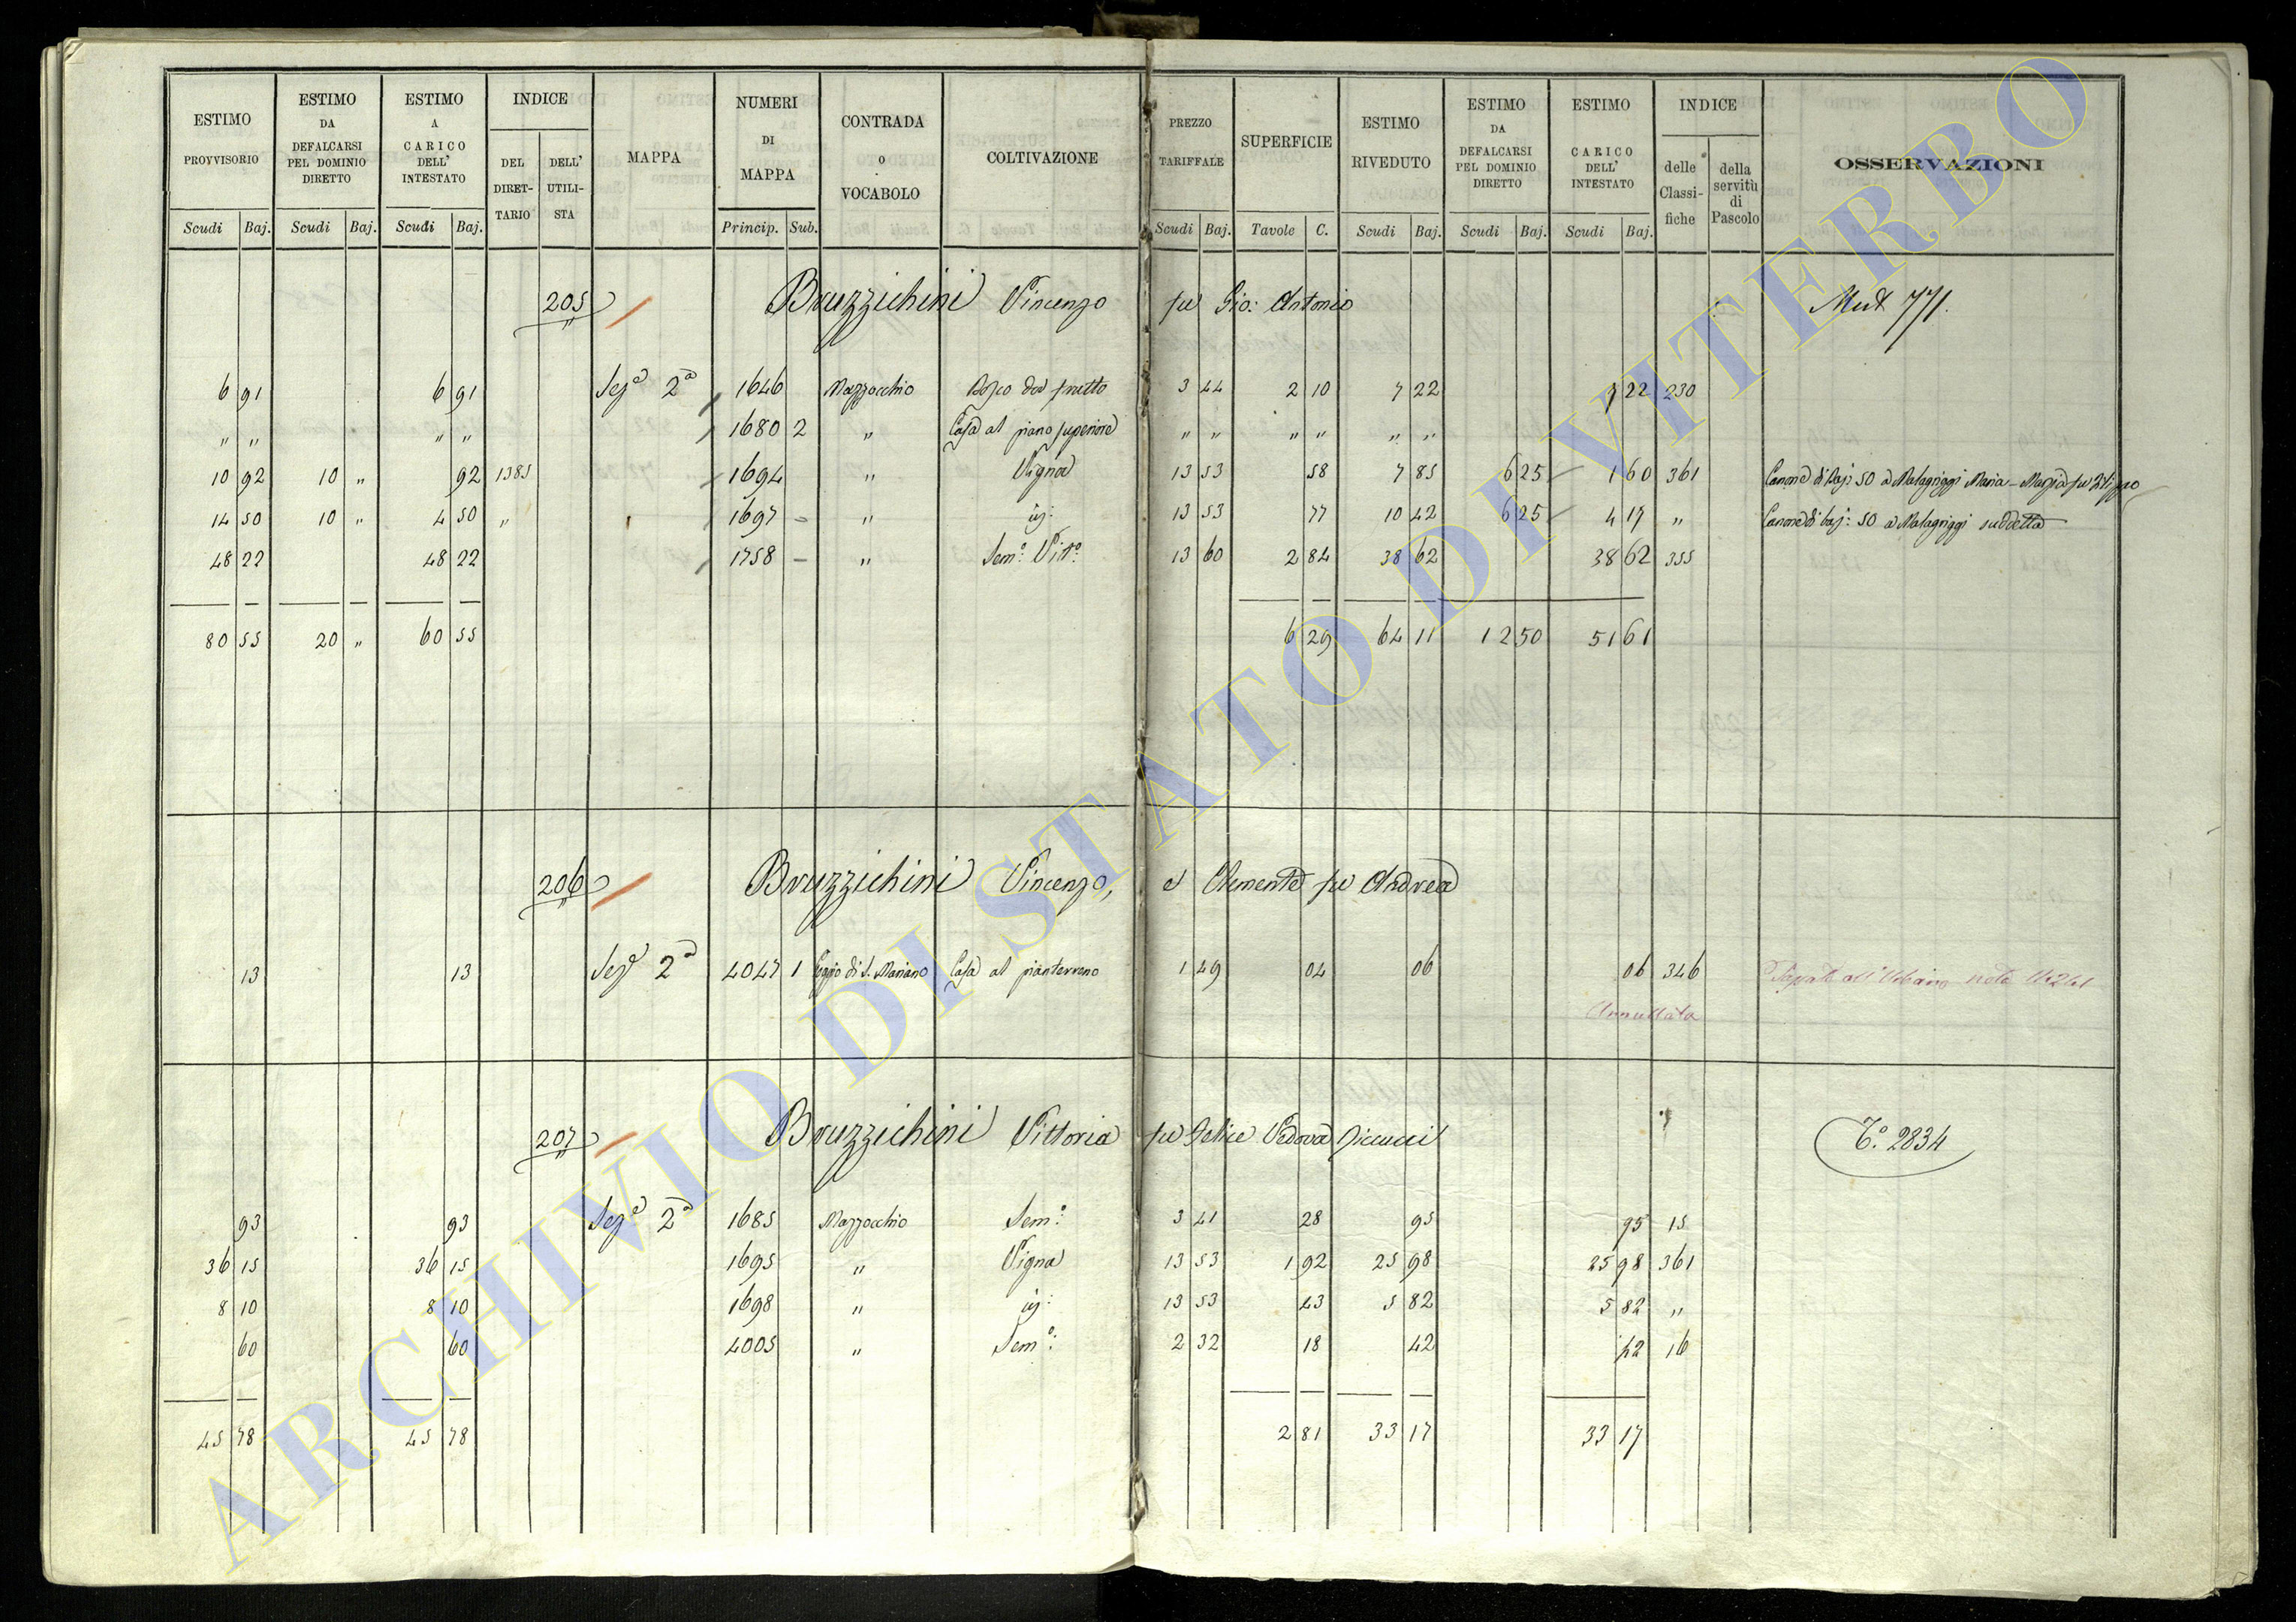 ESTIMO PROVVISORIO | ESTIMO DA DEFALCARSI PEL DOMINIO DIRETTO | ESTIMO A CARICO DELL' INTESTATO | INDICE DEL DIRETTARIO | DELL' UTILISTA | MAPPA | NUMERI DI MAPPA | CONTRADA o VOCABOLO | COLTIVAZIONE | PREZZO TARIFFALE | SUPERFICIE | ESTIMO RIVEDUTO | ESTIMO DA DEFALCARSI PEL DOMINIO DIRETTO | ESTIMO A CARICO DELL' INTESTATO | INDICE delle Classifiche | della servitù di Pascolo | OSSERVAZIONI
Scudi Baj. Scudi Baj. Scudi Baj. Princip. Sub. Scudi Baj. Tavole C. Scudi Baj. Scudi Baj. Scudi Baj.
205 Bruzzichini Vincenzo fu Gio: Antonio Mut 771.
6 91 6 91 Sezᵉ 2ᵃ 1646 Mazzocchio Bosco da frutto 3 44 2 10 7 22 7 22 230
" " " " 1680 2 " Casa al piano superiore " " " " " "
10 92 10 " 92 1385 1694 " Vigna 13 53 58 7 85 6 25 1 60 361 Canone di Baj: 50 a Malagriggi Maria-Marzia fu Filippo
14 50 10 " 4 50 " 1697 - " id: 13 53 77 10 42 6 25 4 17 " Canone di baj: 50 a Malagriggi suddetta
48 22 48 22 1758 - " Semᵒ: Vitᵒ: 13 60 2 84 38 62 38 62 355
80 55 20 " 60 55 6 29 64 11 12 50 51 61
206 Bruzzichini Vincenzo, e Clemente fu Andrea
13 13 Sezᵉ 2ᵃ 4047 1 Poggio di S. Mariano Casa al pianterreno 1 49 04 06 06 346 all'Urbano nota
Annullata
207 Bruzzichini Vittoria fu Felice Vedova Ficcucci Tᵒ. 2834
93 93 Sezᵉ 2ᵃ 1685 Mazzocchio Semᵒ: 3 41 28 95 95 15
36 15 36 15 1695 " Vigna 13 53 1 92 25 98 25 98 361
8 10 8 10 1698 " id: 13 53 43 5 82 5 82 "
60 60 4005 " Semᵒ: 2 32 18 42 42 16
45 78 45 78 2 81 33 17 33 17
ARCHIVIO DI STATO DI VITERBO